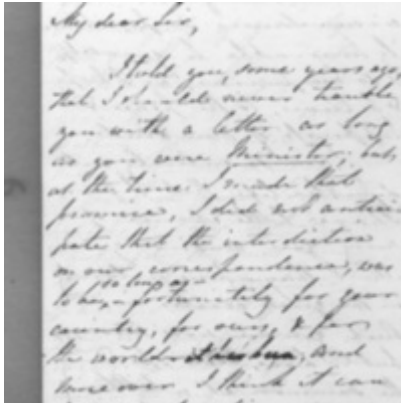 My dear Sir,
I told you, some years ago,
that I should never trouble
you with a letter as long
as you were Minister; but
at the time I made that
promise, I did not antici
pate that the interdiction
on our correspondence, was
so long as
to be, fortunately for your
country, for ours, & for
the world it has been, and
moreover I think it can